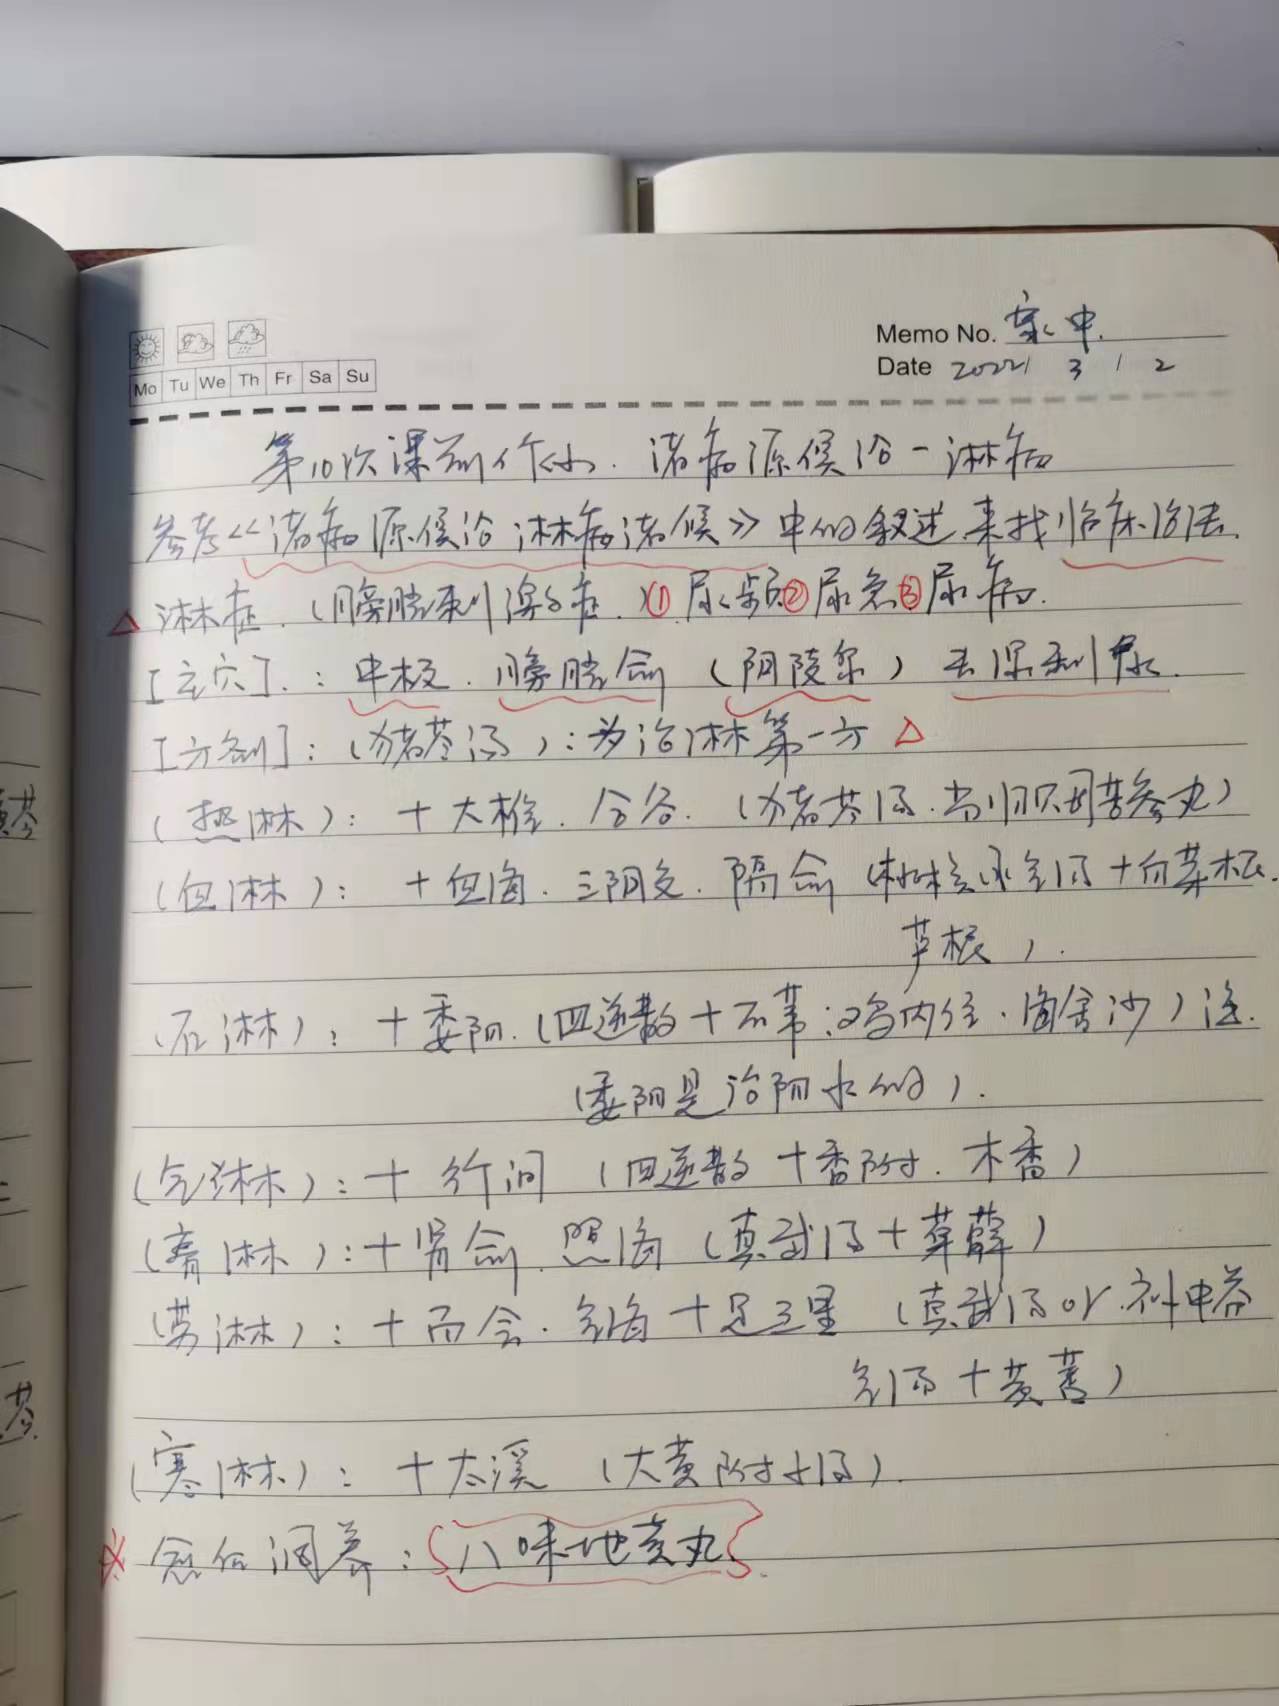 Memo No.
Date 2022 / 3 / 2
Mo Tu We Th Fr Sa Su
第10次课前作业. 诸病源候论-淋病
参考《诸病源候论淋病诸候》中的叙述来找临床治法.
△ 淋症.(膀胱刺激症.)① 尿频②尿急③尿痛.
[主穴].:中极.膀胱俞(阴陵泉)去湿利尿.
[方剂]:(猪苓汤):为治淋第一方 △
(热淋):十大椎.合谷.(猪苓汤.当归贝母苦参丸)
(血淋):十血海.三阴交.隔俞(桃核承气汤十白茅根.
芦根).
(石淋):十委阳.(四逆散十石苇:鸡内金.海金沙)注.
(委阳是治阳水的).
(气淋):十行间(四逆散十香附.木香)
(膏淋):十肾俞.照海(真武汤十萆薢)
(劳淋):十百会.气海十足三里(真武汤or.补中益
气汤十黄蓍)
(寒淋):十太溪(大黄附子汤).
※ 愈后调养:八味地黄丸.